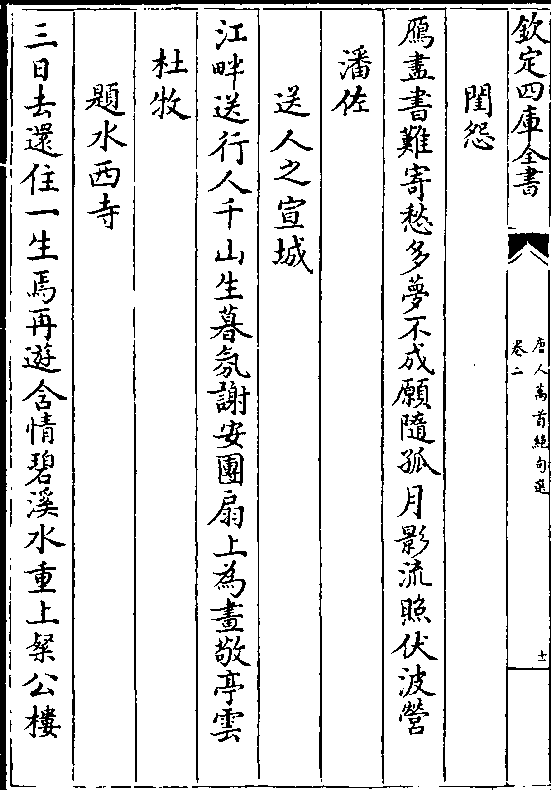 欽定四庫全書
唐人萬首絕句選
卷二
十一
閨怨
鴈盡書難寄愁多夢不成願隨孤月影流照伏波營
潘佐
送人之宣城
江畔送行人千山生暮氛謝安團扇上為畫敬亭雲
杜牧
題水西寺
三日去還住一生焉再遊含情碧溪水重上粲公樓